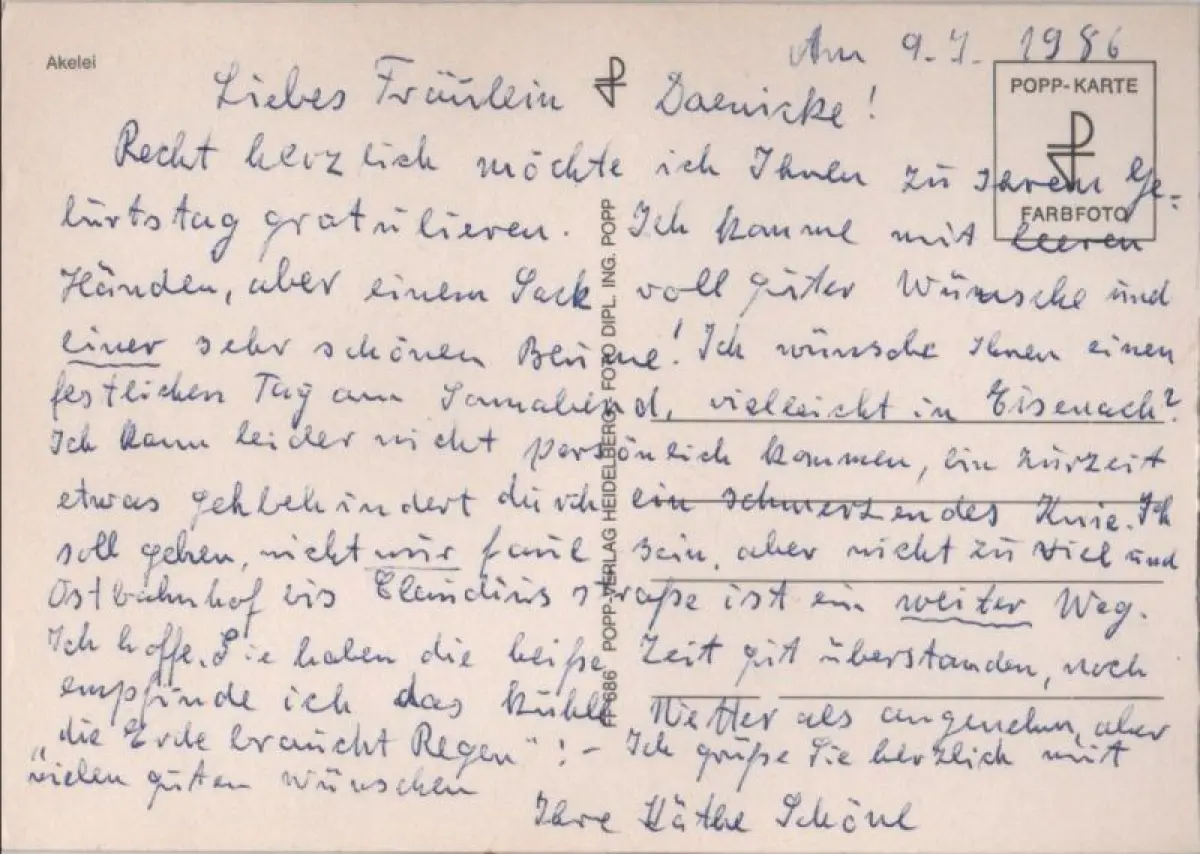 Akelei
Am 9.7. 1986
Liebes Fräulein Daenicke!
POPP-KARTE
FARBFOTO
Recht herzlich möchte ich Ihnen zu Ihrem Ge-
burtstag gratulieren. Ich komme mit leeren
Händen, aber einem Sack voll guter Wünsche und
einer sehr schönen Blume! Ich wünsche Ihnen einen
festlichen Tag am Sonnabend, vielleicht in Eisenach?
Ich kann leider nicht persönlich kommen, bin zurzeit
etwas gehbehindert durch ein schmerzendes Knie. Ich
soll gehen, nicht nur faul sein, aber nicht zu viel und
Ostbahnhof bis Claudiusstraße ist ein weiter Weg.
Ich hoffe, Sie haben die heiße Zeit gut überstanden, noch
empfinde ich das kühle Wetter als angenehm, aber
„die Erde braucht Regen"! - Ich grüße Sie herzlich mit
vielen guten Wünschen
Ihre Käthe
POPP-VERLAG HEIDELBERG, FOTO DIPL. ING. POPP